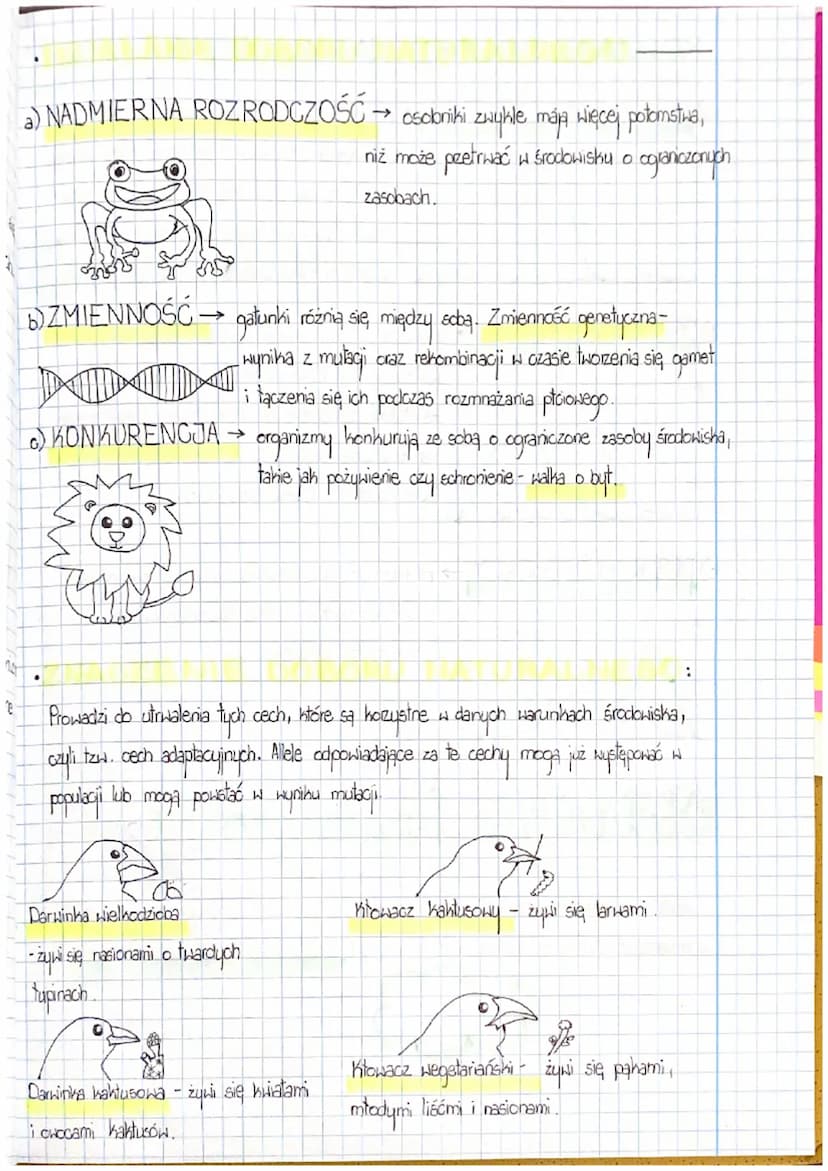 a) NADMIERNA ROZRODCZOŚĆ → osobniki zwykle mają więcej potomstwa,
niż może pzetrwać w środowisku o ograniczonych
zasobach.
b) ZMIENNOŚĆ → gatunki różnią się między sobą. Zmienność genetyczna-
wynika z mutacji oraz rekombinacji w czasie tworzenia się gamet
i łączenia się ich podczas rozmnażania płciowego.
c) KONKURENCJA → organizmy konkurują ze sobą o ograniczone zasoby środowiska,
takie jak pożywienie czy schronienie - walka o byt.
NATURALNEGO:
Prowadzi do utrwalenia tych cech, które są kozystne w danych warunkach środowiska,
czyli tzw. cech adaptacyjnych. Allele odpowiadające za te cechy mogą już występować w
populacji lub mogą powstać w wyniku mutacji.
Darwinka wielkodzioba
- żywi się nasionami o twardych
łupinach.
Kłowacz kaktusowy - żywi się larwami.
Darwinka kaktusowa - żywi się kwiatami
i owocami kaktusów.
Kłowacz wegetariański - żywi się pąkami,
młodymi liśćmi i nasionami.